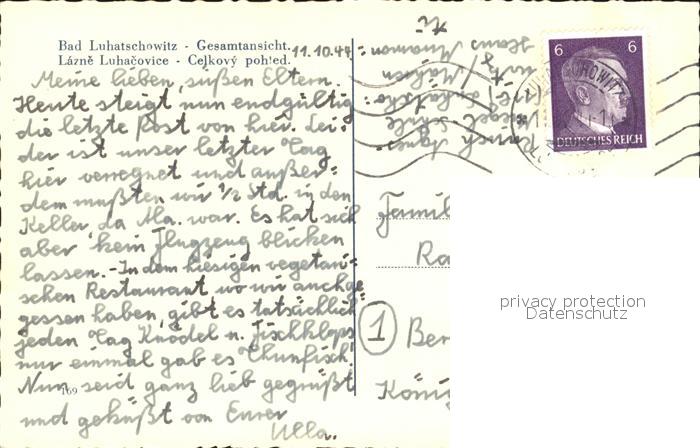 Bad Luhatschowitz - Gesamtansicht.
Lázně Luhačovice - Celkový pohled.
11.10.44
Meine lieben, süßen Eltern.
Heute steigt nun endgültig
die letzte Post von hier. Lei-
der ist unser letzter Tag
hier verregnet und außer-
dem mußten wir ½ Std. in den
Keller, da Ala. war. Es hat sich
aber kein Flugzeug blicken
lassen. - In dem hiesigen vegetari-
schen Restaurant wo wir auchge-
gessen haben, gibt es tatsächlich
jeden Tag Knödel u. Fischklops
nur einmal gab es Thunfisch!
Nun seid ganz lieb gegrüßt
und geküßt von Eurer
Ulla.
169
6 6
DEUTSCHES REICH
Famil
Ra
1 Ber
König
privacy protection
Datenschutz